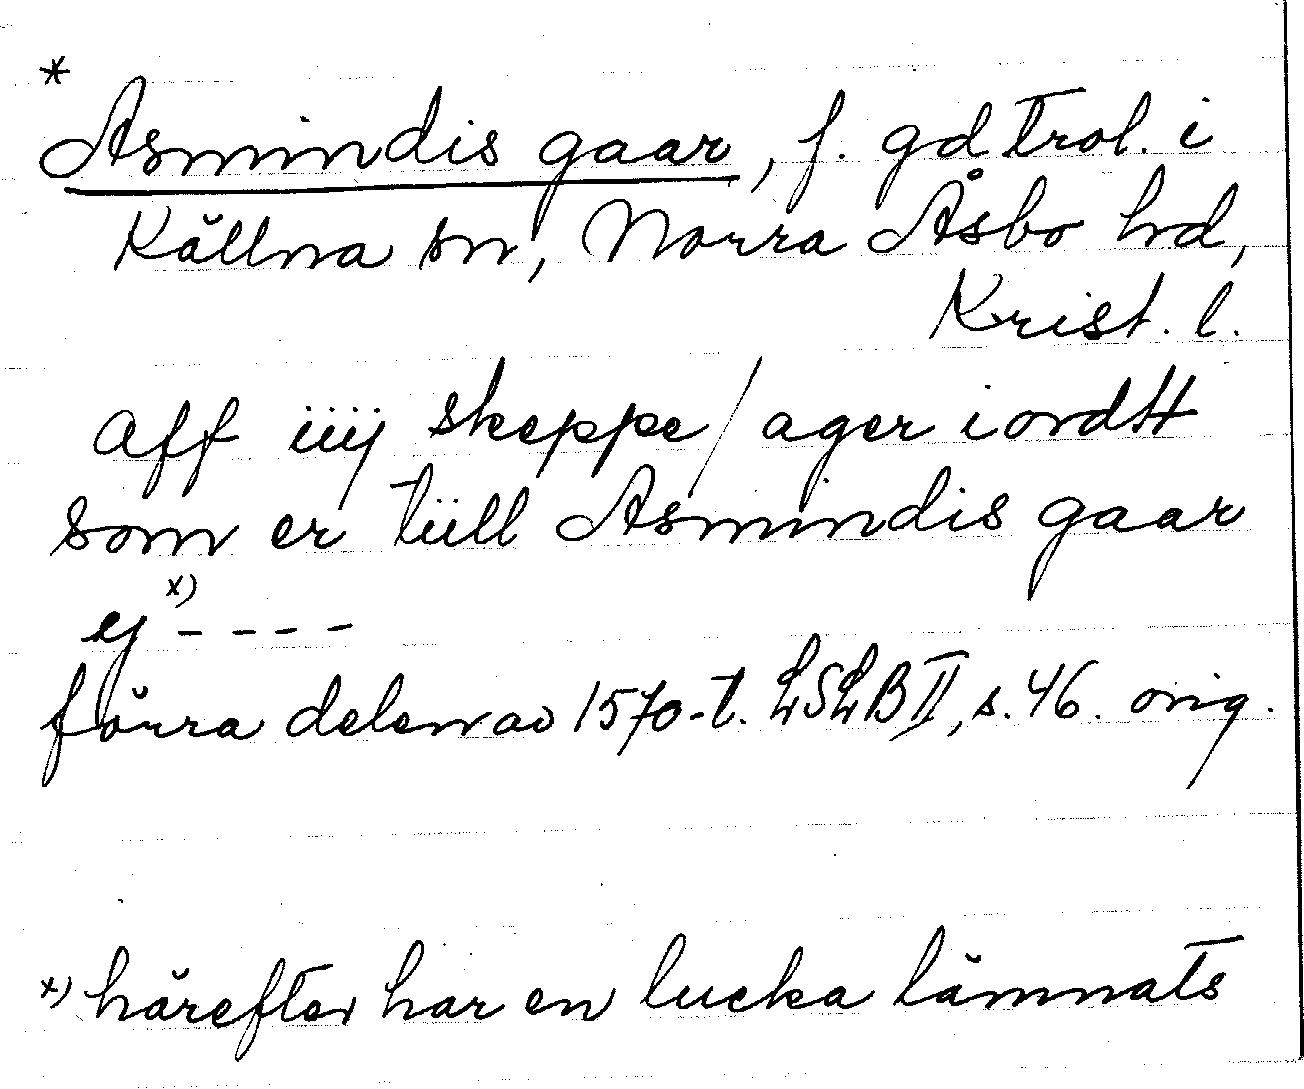 *
Asmindis gaar, f. gd Trol. i
Källna sn, Norra Åsbo hd,
Krist. l.
Aff iiij skeppe / ager iordtt
som er tiill Asmindis gaar
ej x) - - - -
förra delen av 1570-t. LSLB II, s. 46. orig.
x) härefter har en lucka lämnats